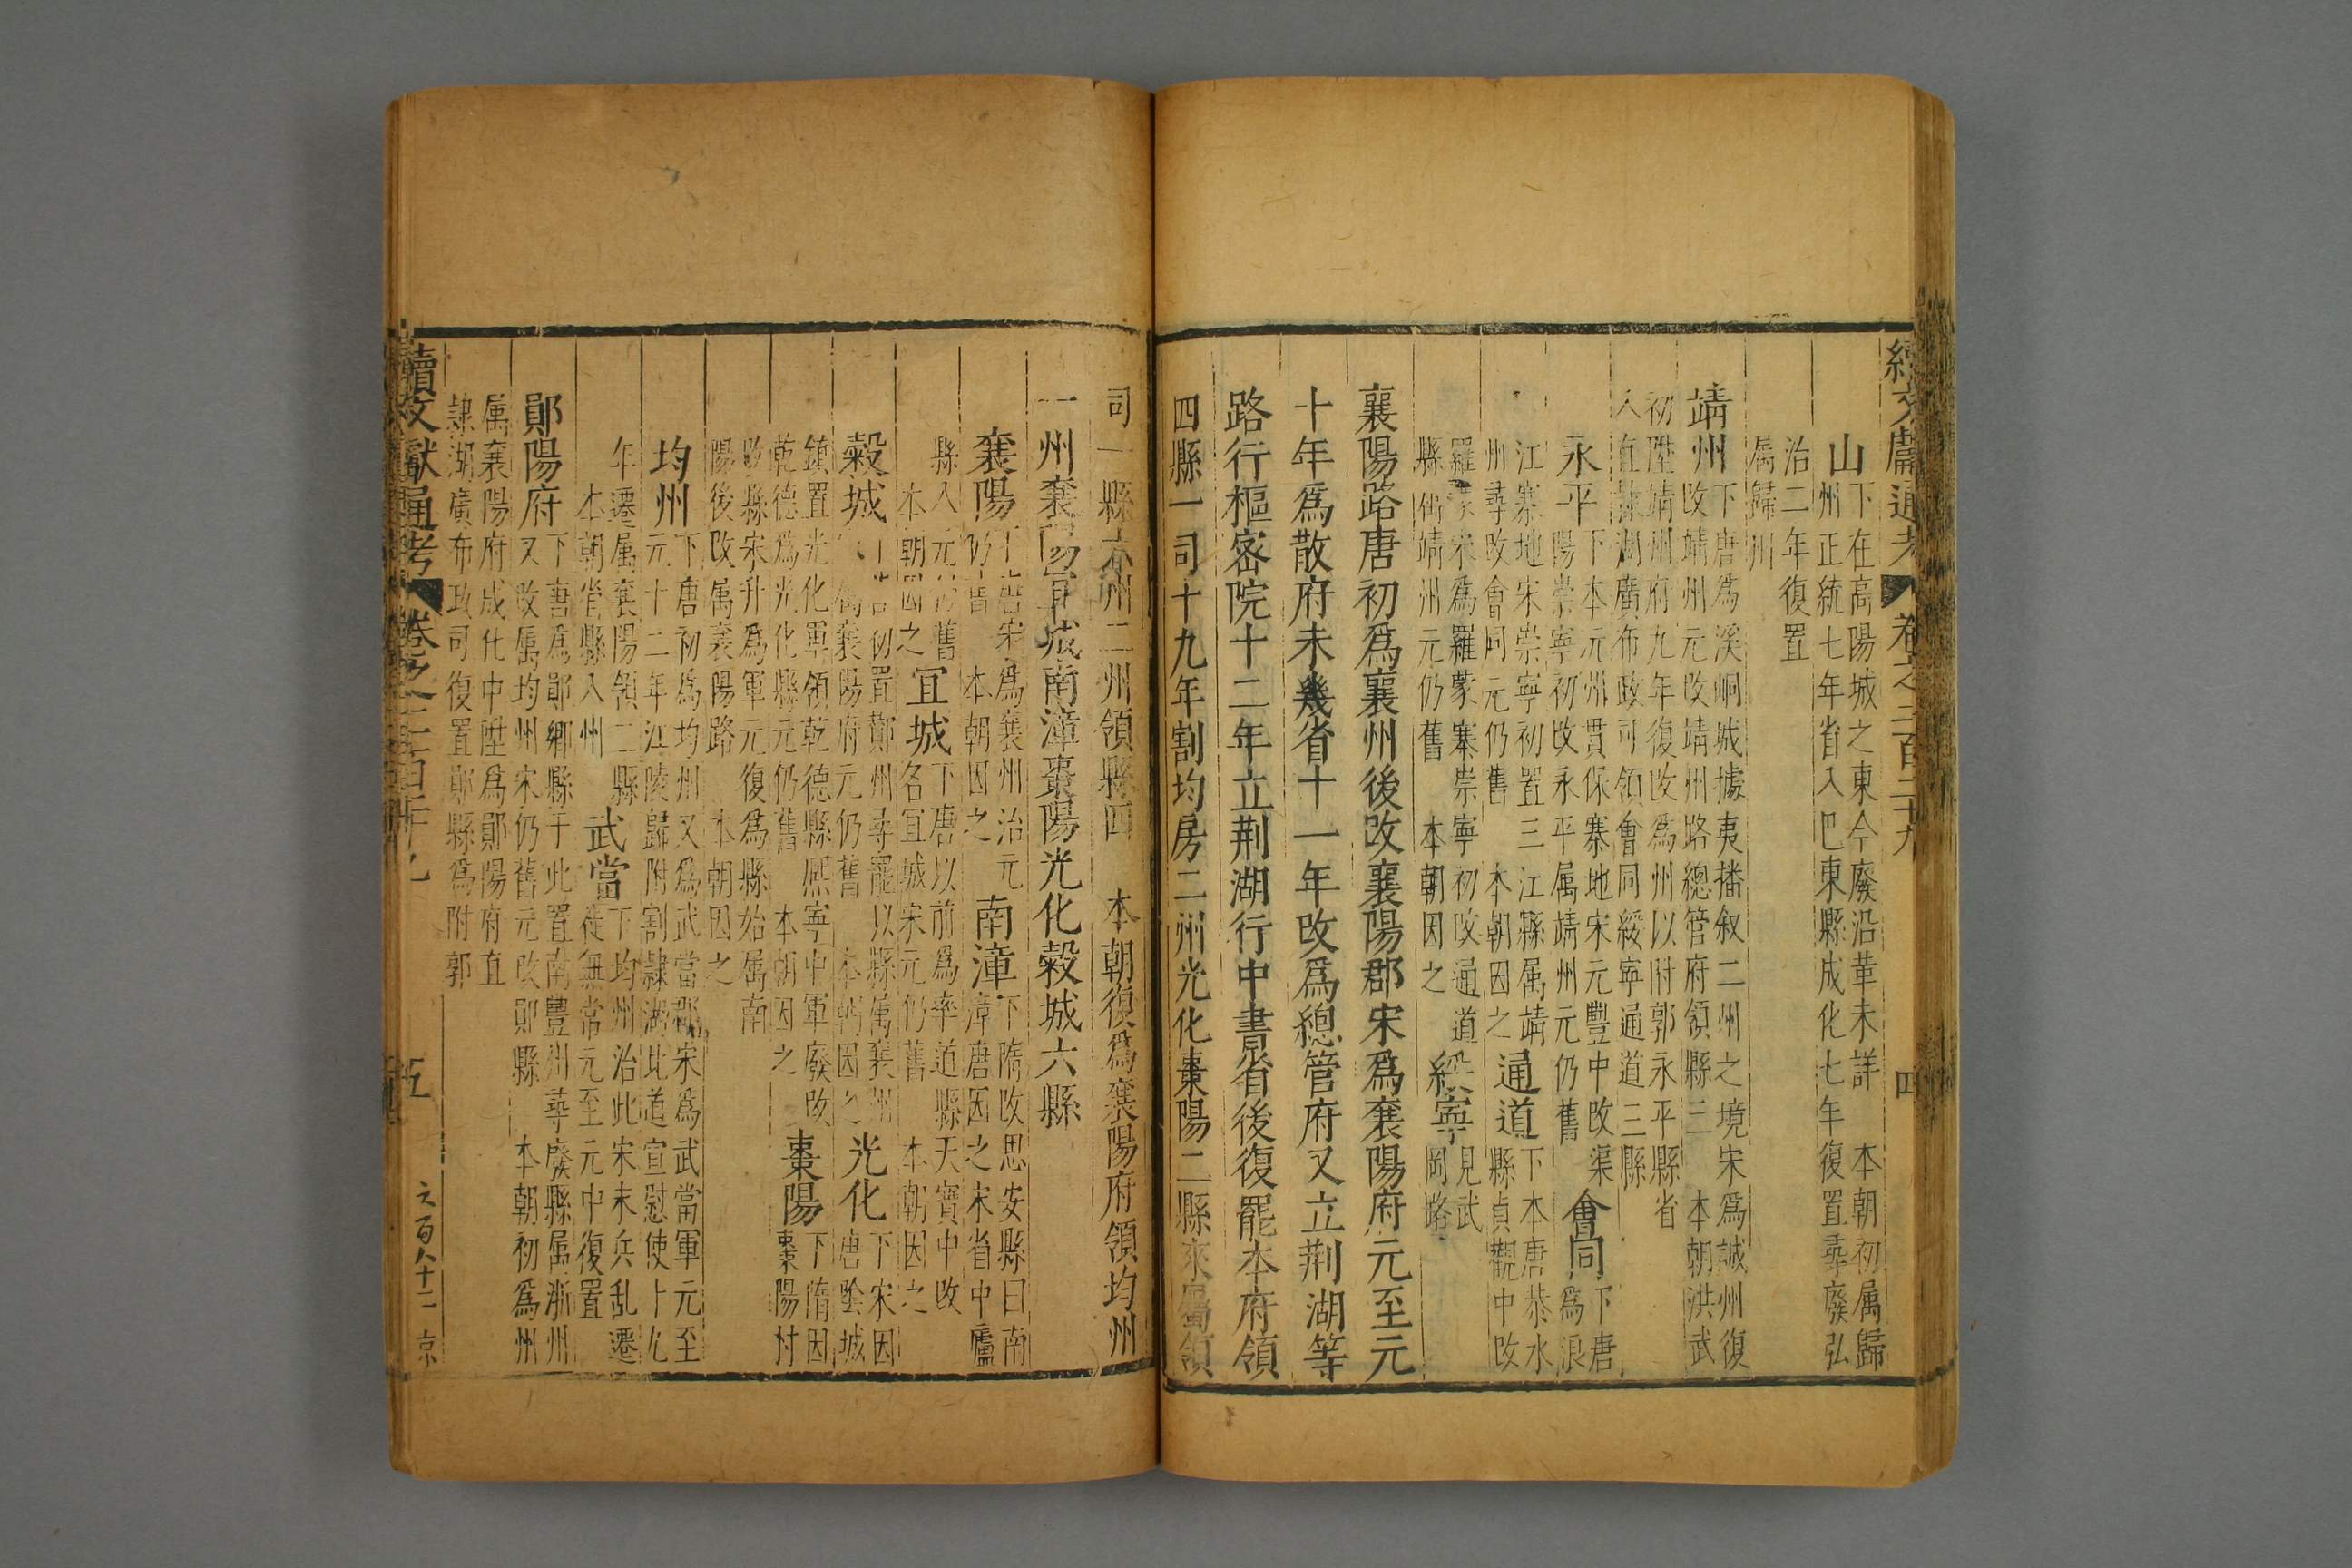 續文獻通考 卷之二百二十九 四
山下在高陽城之東今廢沿革未詳 本朝初属歸
州正統七年省入巴東縣成化七年復置尋廢弘
治二年復置
属歸州
靖州下唐為溪峒城據夷播叙二州之境宋爲誠州復
改靖州元改靖州路總管府領縣三 本朝洪武
初陞靖州府九年復改為州以附郭永平縣省
入直隸湖廣布政司領會同綏寧通道三縣
永平下本元州貫保寨地宋元豐中改渠
陽崇寧初改永平属靖州元仍舊
會同下唐為浪
江寨地宋崇寧初置三江縣属靖
州尋改會同元仍舊 本朝因之
通道下本唐恭水
縣貞觀中改
羅蒙宋爲羅蒙寨崇寧初改通道
縣属靖州元仍舊 本朝因之
綏寧見武
岡路
襄陽路唐初爲襄州後改襄陽郡宋爲襄陽府元至元
十年爲散府未幾省十一年改爲總管府又立荆湖等
路行樞密院十二年立荆湖行中書省後復罷本府領
四縣一司十九年割均房二州光化棗陽二縣來屬領
司一縣六州二州領縣四 本朝復爲襄陽府領均州
一州襄陽宜城南漳棗陽光化穀城六縣
襄陽下唐宋爲襄州治元
仍舊 本朝因之
南漳下隋改思安縣曰南
漳唐因之宋省中廬
縣入元仍舊
本朝因之
宜城下唐以前爲率道縣天寶中改
名宜城宋元仍舊 本朝因之
穀城下唐初置酇州尋罷以縣属襄州
属襄陽府元仍舊 本朝因之
光化下宋因
唐陰城
鎮置光化軍領乾德縣熙寧中軍廢改
乾德爲光化縣元仍舊 本朝因之
棗陽下隋因
棗陽村
改縣宋升爲軍元復爲縣始属南
陽後改属襄陽路 本朝因之
均州下唐初爲均州又爲武當郡宋爲武當軍元至
元十二年江陵歸附割隸湖北道宣慰使十九
年遷属襄陽領二縣
本朝省縣入州
武當下均州治此宋末兵乱遷
徙無常元至元中復置
鄖陽府下唐爲鄖鄉縣于此置南豐州尋廢縣属淅州
又改属均州宋仍舊元改鄖縣 本朝初爲州
属襄陽府成化中陞爲鄖陽府直
隸湖廣布政司復置鄖縣爲附郭
續文獻通考 卷之二百二十九 五 六百八十二 京